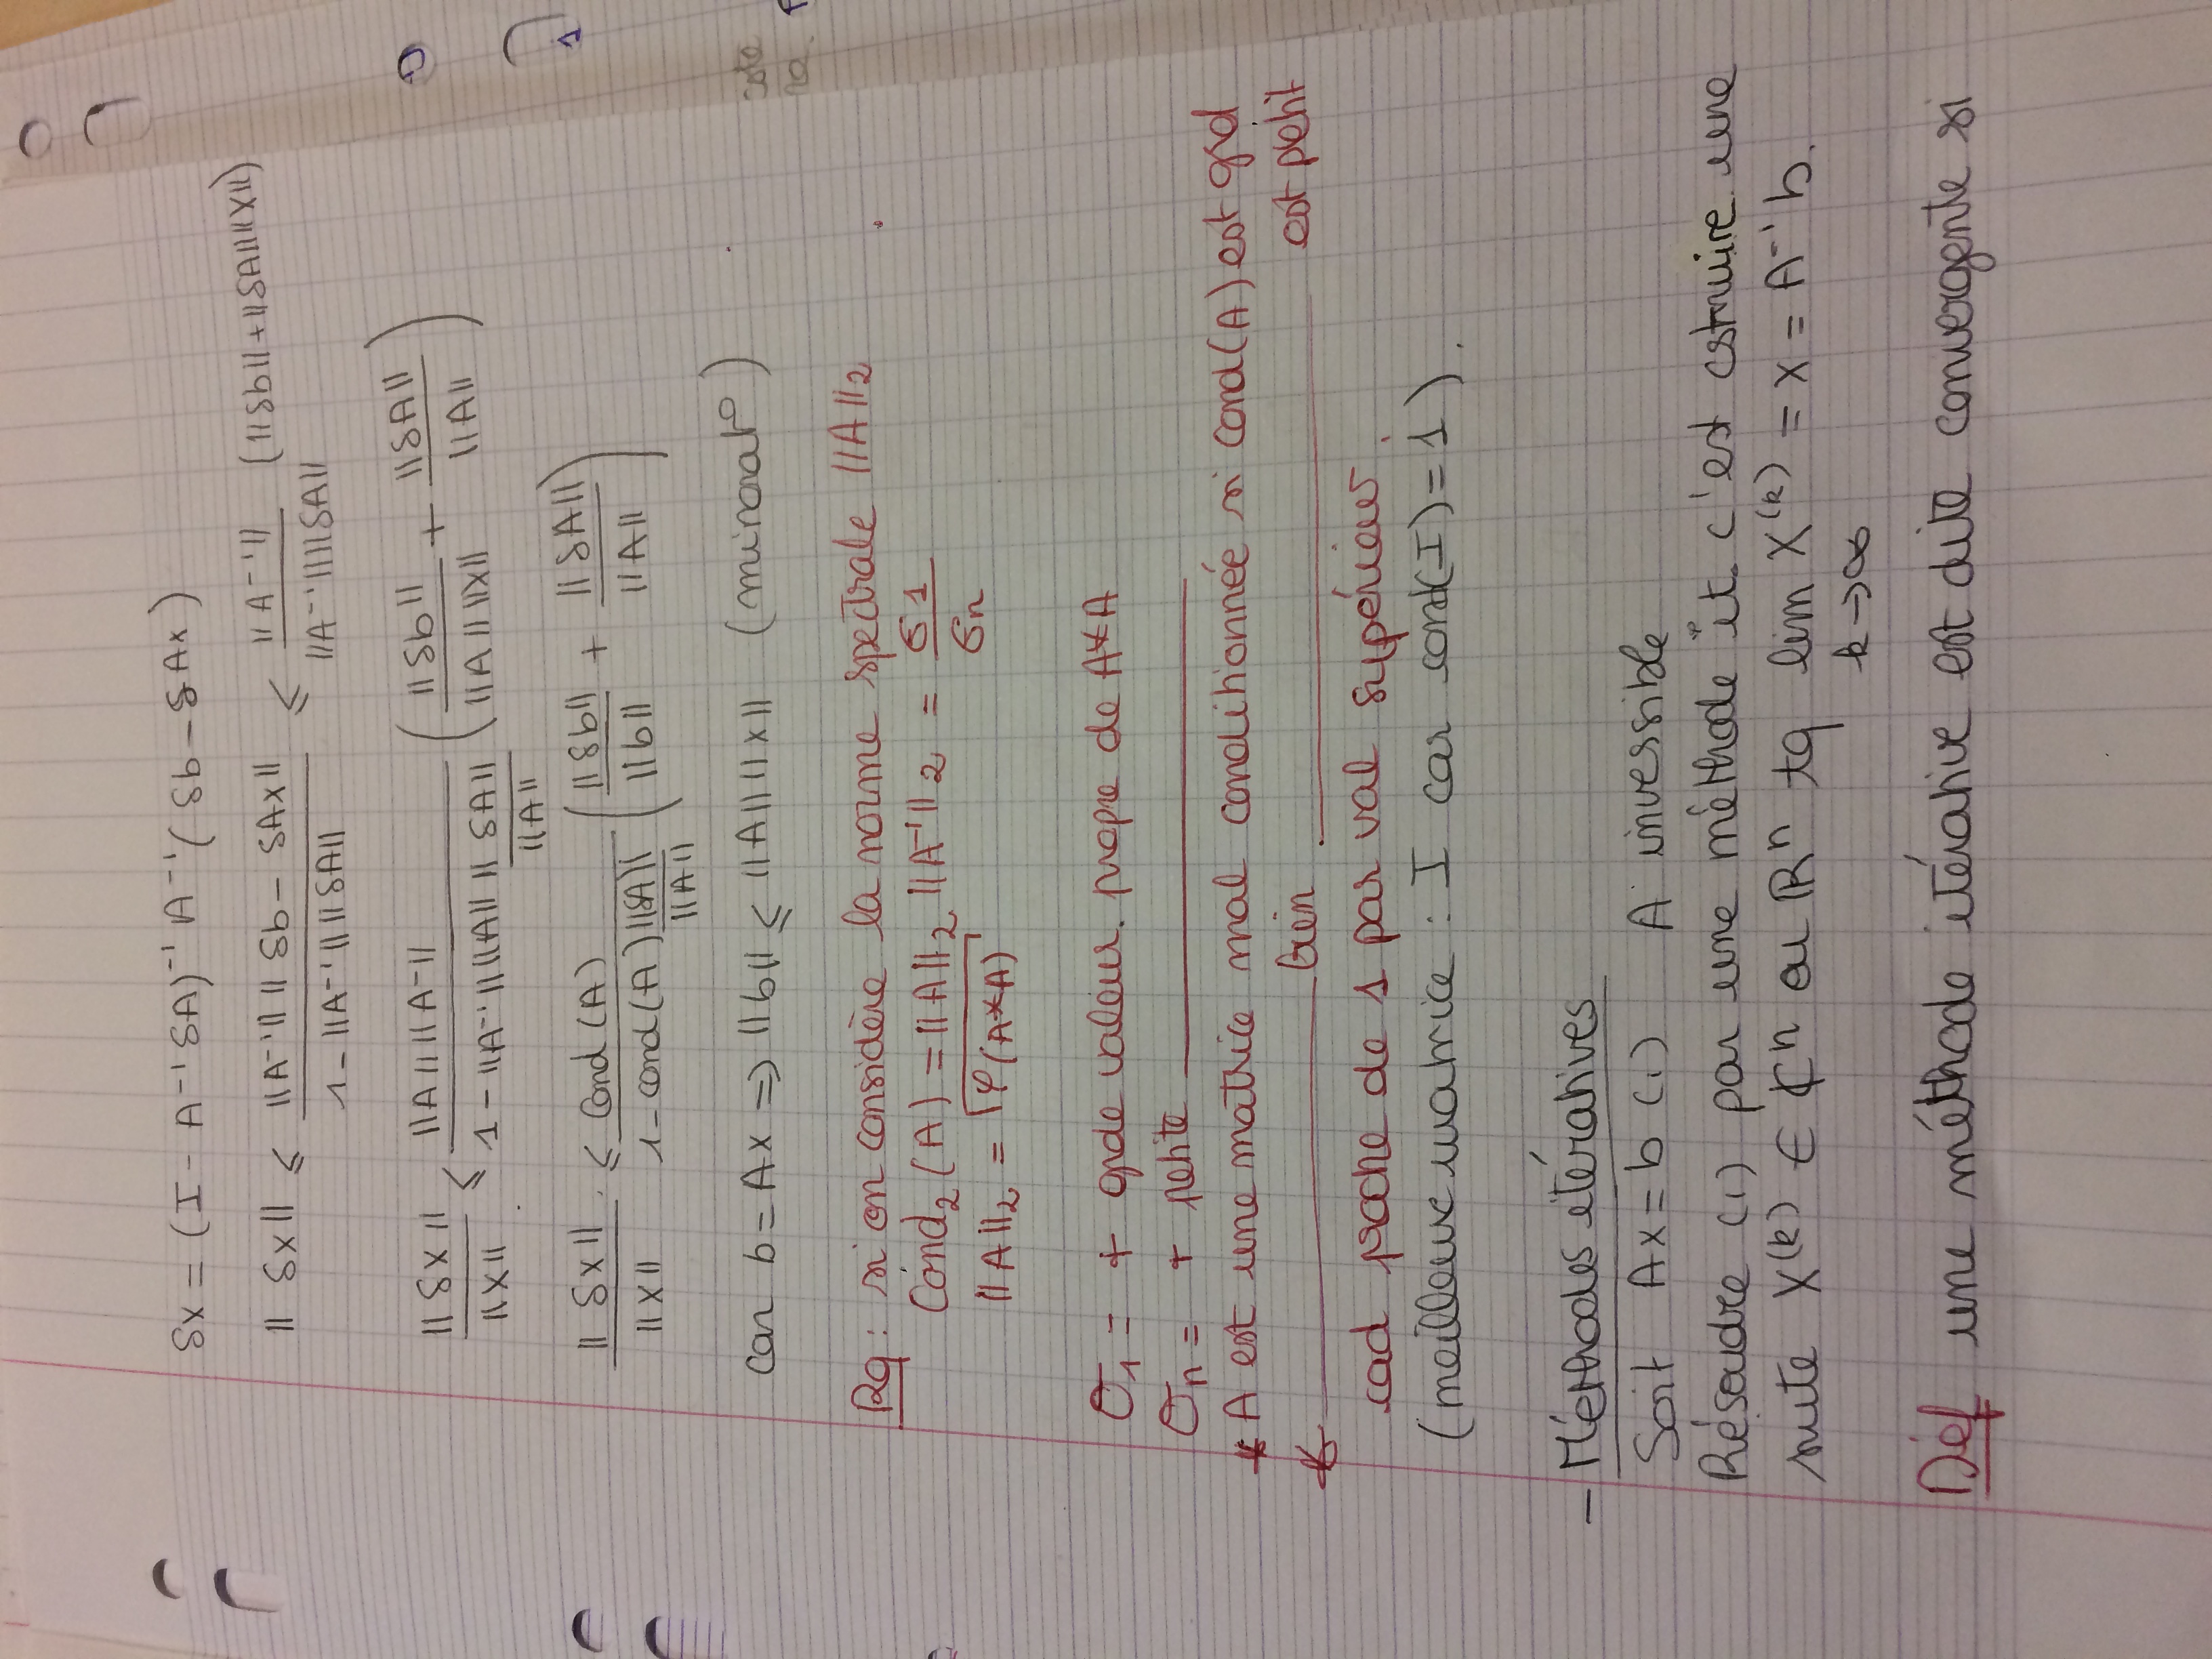 δx = (I - A⁻¹δA)⁻¹ A⁻¹(δb - δAx)
|| δx || ≤ ||A⁻¹|| || δb - δAx || / 1 - ||A⁻¹|| ||δA|| ≤ ||A⁻¹|| / ||A⁻¹|| ||δA|| (||δb|| + ||δA|| ||x||)
||δx|| / ||x|| ≤ ||A|| ||A⁻|| / 1 - ||A⁻¹|| ||A|| ||δA|| / ||A|| ( ||δb|| / ||A|| ||x|| + ||δA|| / ||A|| )
||δx|| / ||x|| ≤ Cond(A) / 1 - cond(A) ||δA|| / ||A|| ( ||δb|| / ||b|| + ||δA|| / ||A|| )
car b = Ax ⇒ ||b|| ≤ ||A|| ||x|| (minorat°)
Rq : si on considère la norme spectrale ||A||₂
Cond₂(A) = ||A||₂ ||A⁻¹||₂ = σ1 / σn
||A||₂ = √φ(A*A)
σ₁ = + grde valeur propre de A*A
σn = + petite ________
* A est une matrice mal conditionnée si cond(A) est grd
* ________ bien ________ est petit
cad proche de 1 par val supérieur.
(meilleure matrice : I car cond(I) = 1).
- Méthodes itératives
Soit Ax = b (1) A inversible
Résoudre (1) par une méthode it. c'est cstruire une
suite X⁽ᵏ⁾ ∈ ℂⁿ ou ℝⁿ tq lim X⁽ᵏ⁾ = x = A⁻¹b.
k → ∞
Déf une méthode itérative est dite convergente si